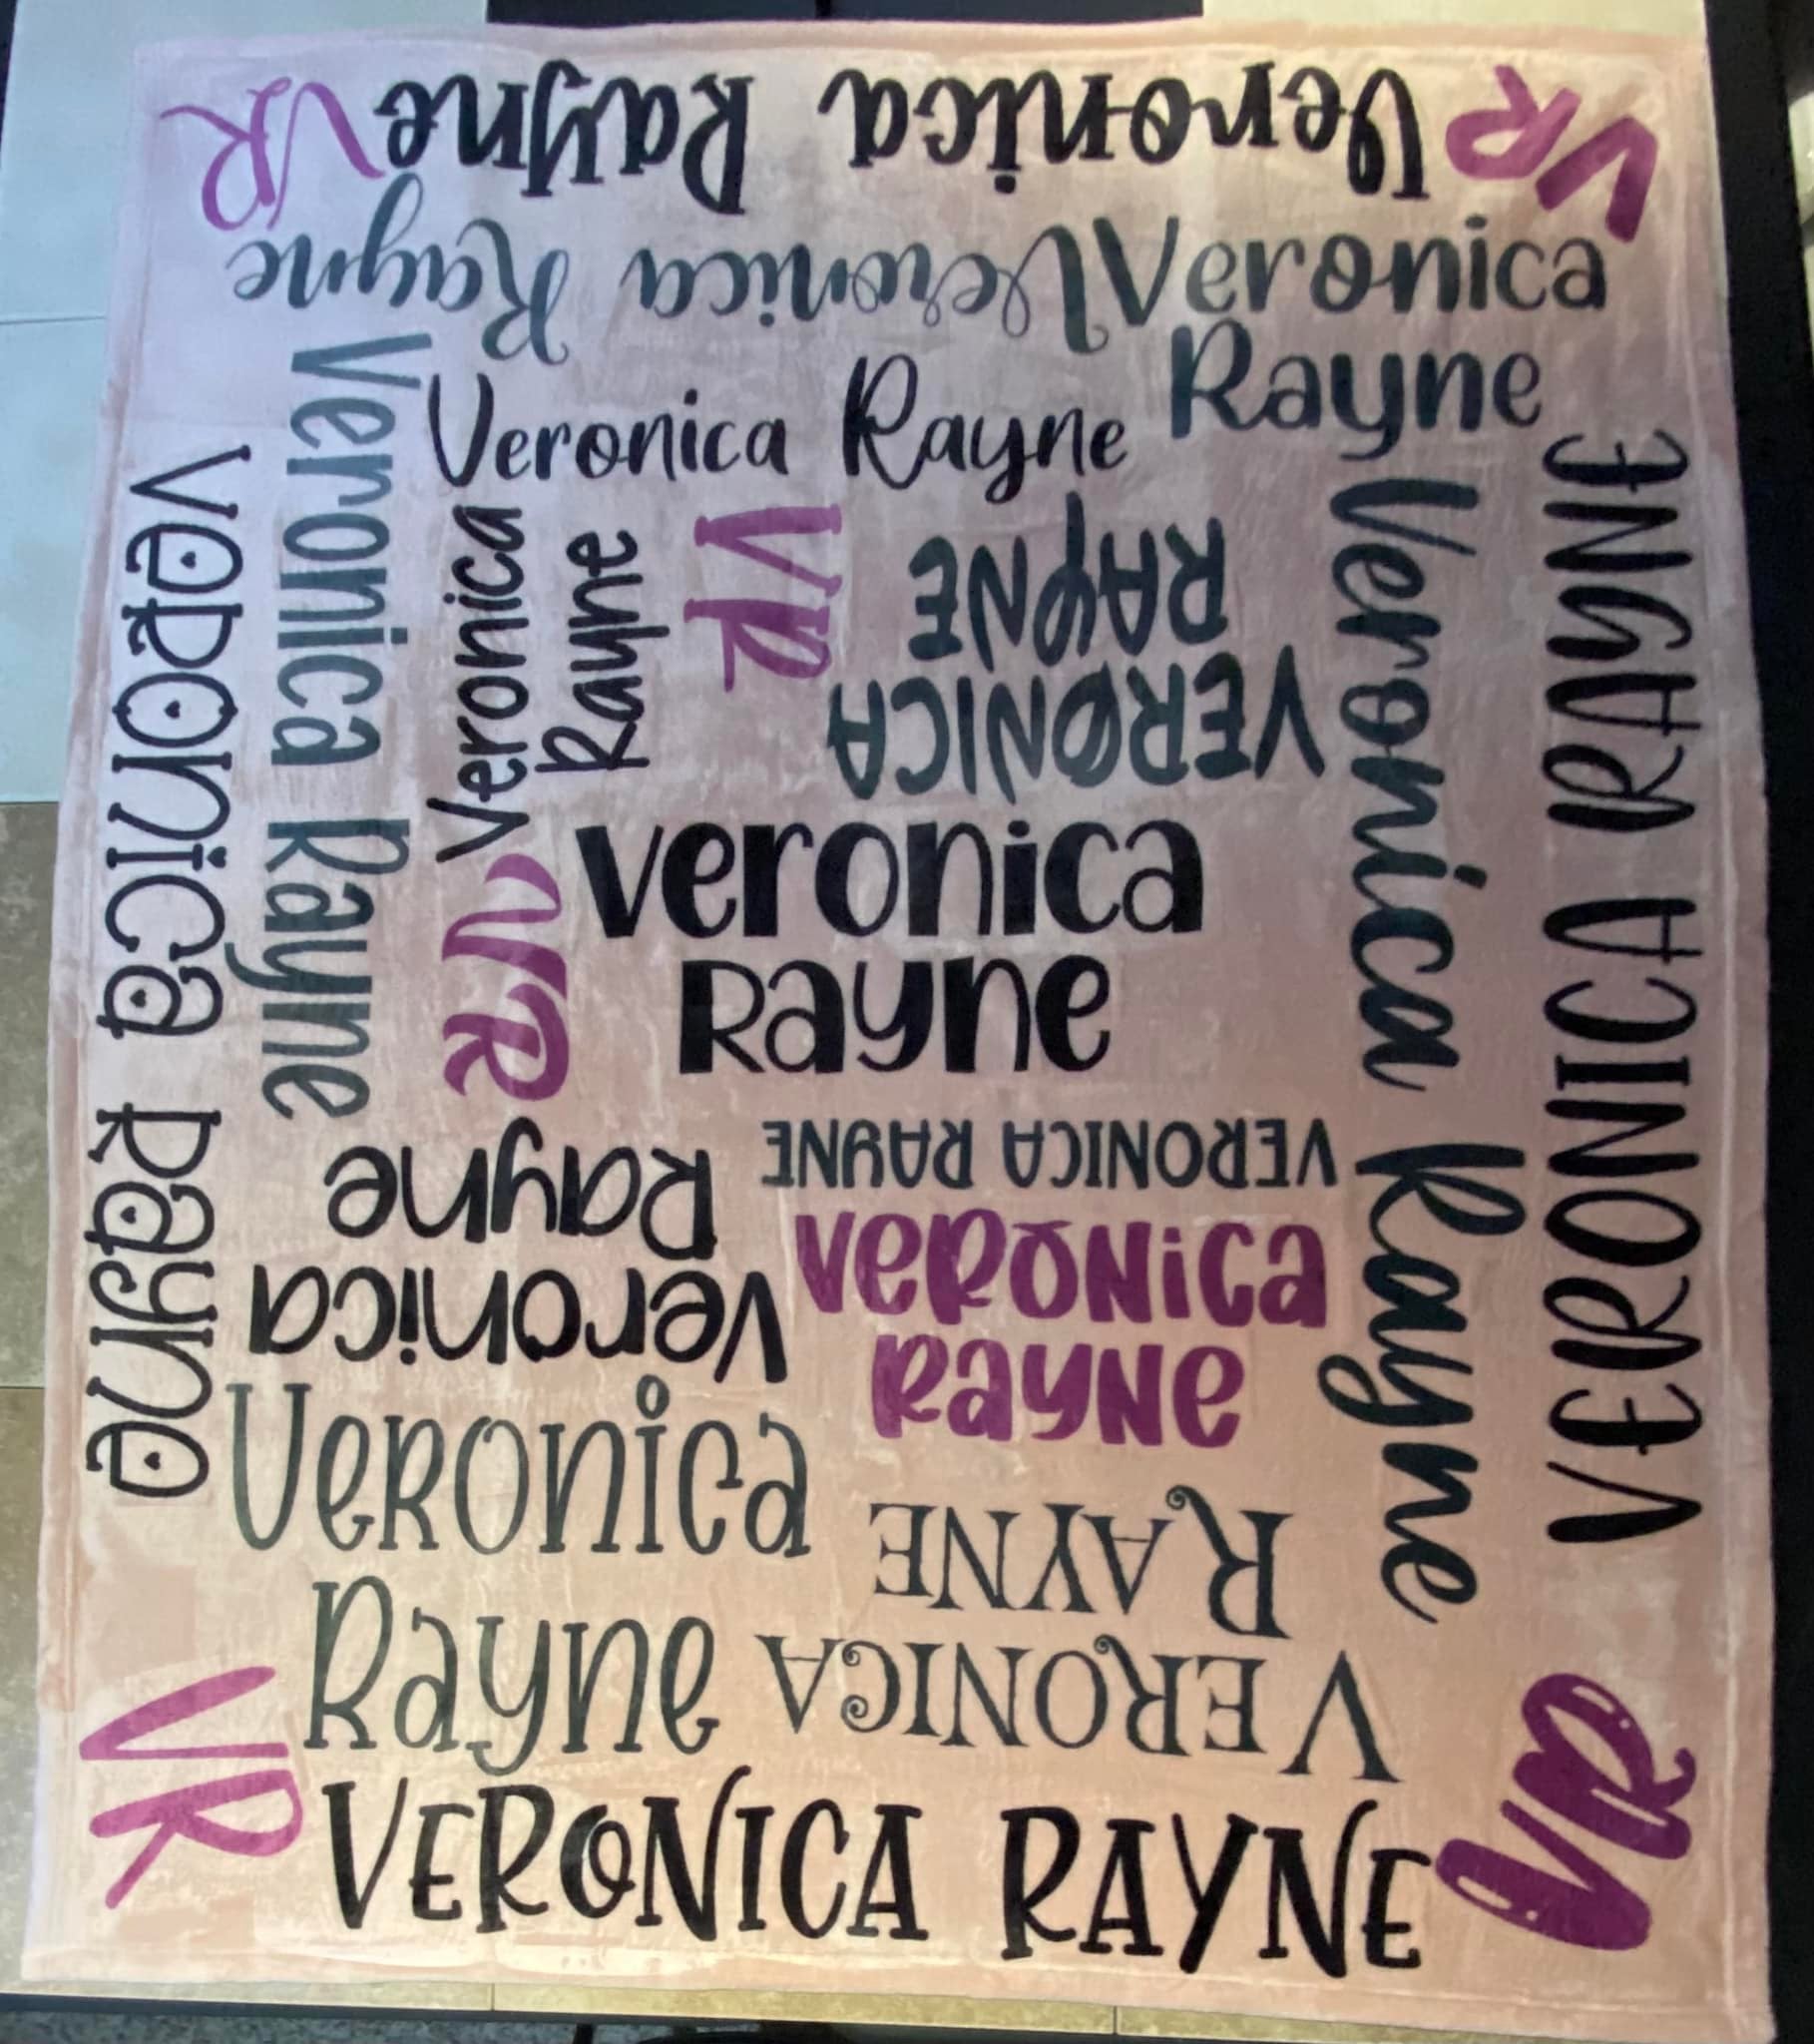 VR
Veronica Rayne
VR
Veronica Rayne
Veronica
Rayne
Veronica Rayne
Veronica Rayne
Veronica Rayne
Veronica
Rayne
VR
VERONICA
RAYNE
Veronica Rayne
VERONICA RAYNE
veronica
Rayne
VR
VERONICA RAYNE
Veronica
Rayne
VeRONica
RayNe
VeRonica
Rayne
VERONICA
RAYNE
VR
VERONICA RAYNE
VR